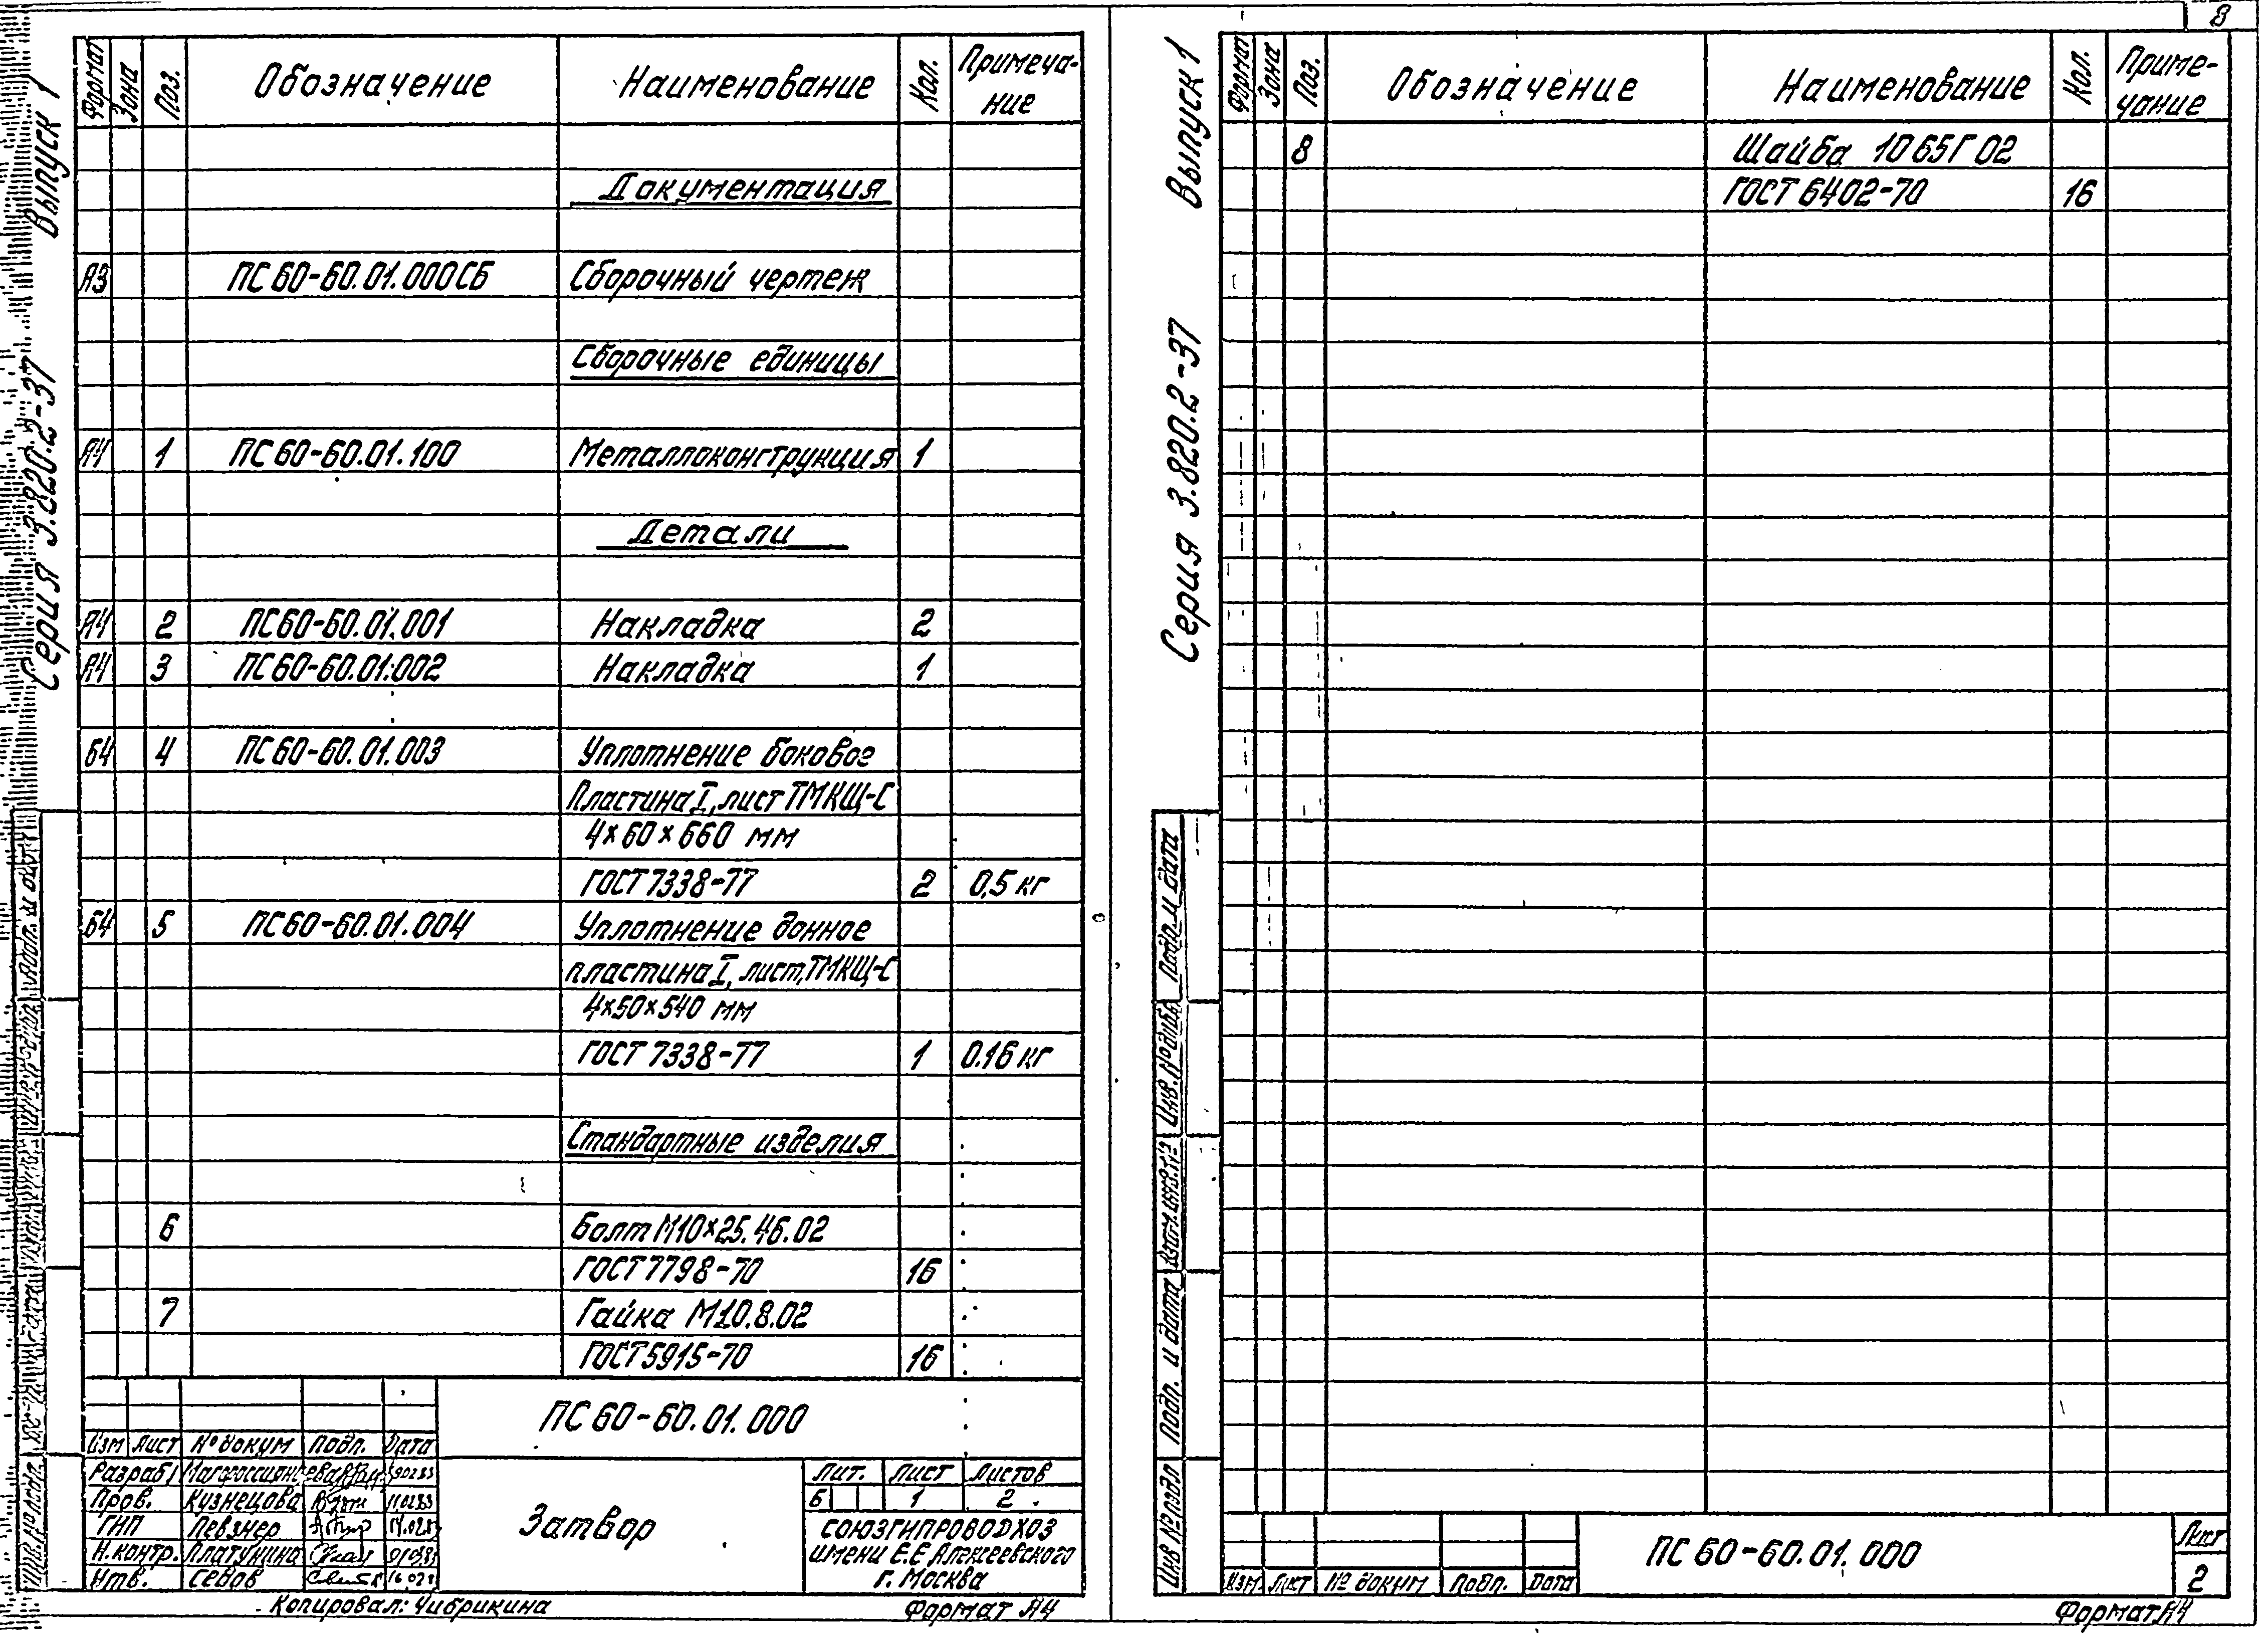 8
Серия 3.820.2-37 Выпуск 1
Формат Зона Поз. Обозначение Наименование Кол. Примеча-
ние
Документация
А3 ПС 60-60.01.000СБ Сборочный чертеж
Сборочные единицы
А4 1 ПС 60-60.01.100 Металлоконструкция 1
Детали
А4 2 ПС 60-60.01.001 Накладка 2
А4 3 ПС 60-60.01.002 Накладка 1
б4 4 ПС 60-60.01.003 Уплотнение боковое
Пластина I, лист ТМКЩ-С
4×60×660 мм
ГОСТ 7338-77 2 0,5 кг
б4 5 ПС 60-60.01.004 Уплотнение донное
пластина I, лист, ТМКЩ-С
4×50×540 мм
ГОСТ 7338-77 1 0.16 кг
Стандартные изделия
6 Болт М10×25.46.02
ГОСТ 7798-70 16
7 Гайка М10.8.02
ГОСТ 5915-70 16
ПС 60-60.01.000
Изм Лист № докум Подп. Дата
Разраб
Пров. Кузнецова 11.02.83
ГИП Певзнер
Н.контр. Платукина
Утв. Седов
Затвор
Лит. Лист Листов
Б 1 2
СОЮЗГИПРОВОДХОЗ
имени Е.Е Алексеевского
г. Москва
Копировал: Чибрикина Формат А4
Серия 3.820.2-37 Выпуск 1
Формат Зона Поз. Обозначение Наименование Кол. Приме-
чание
8 Шайба 10 65Г 02
ГОСТ 6402-70 16
Подп. и дата
Инв. № дубл.
Взам. инв. №
Подп. и дата
Инв № подл
Изм Лист № докум Подп. Дата
ПС 60-60.01.000
Лист
2
Формат А4